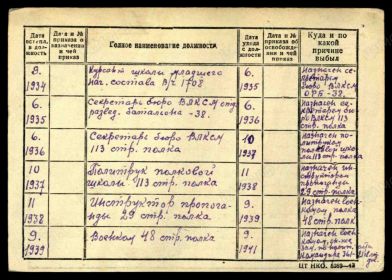 Дата вступл. в должность
Дата и № приказа о назначении и чей приказ
Полное наименование должности
Дата ухода с должности
Дата и № приказа об освобождении и чей приказ
Куда и по какой причине выбыл
8. 1934
Курсант школы младшего
нач. состава В/ч 1708
6. 1935
Назначен секретарем
бюро ВЛКСМ
ОРБ-38.
6. 1935
Секретарь бюро ВЛКСМ отд.
развед. батальона -38.
6. 1936
Назначен секретарем
бюро ВЛКСМ
113 стр. полка
6. 1936
Секретарь бюро ВЛКСМ
113 стр. полка
10 1937
Назначен политруком
полковой школы 113 стр. полка
10 1937
Политрук полковой
школы 113 стр. полка
11 1938
Назначен инструктором
пропаганды
29 стр. полка
11 1938
Инструктор пропаганды
29 стр. полка
9. 1939
Назначен военкомом
48 стр. полка
9. 1939
Военком 48 стр. полка
9 1941
Назначен военкомом,
зам.
командира
ЦГ НКО.